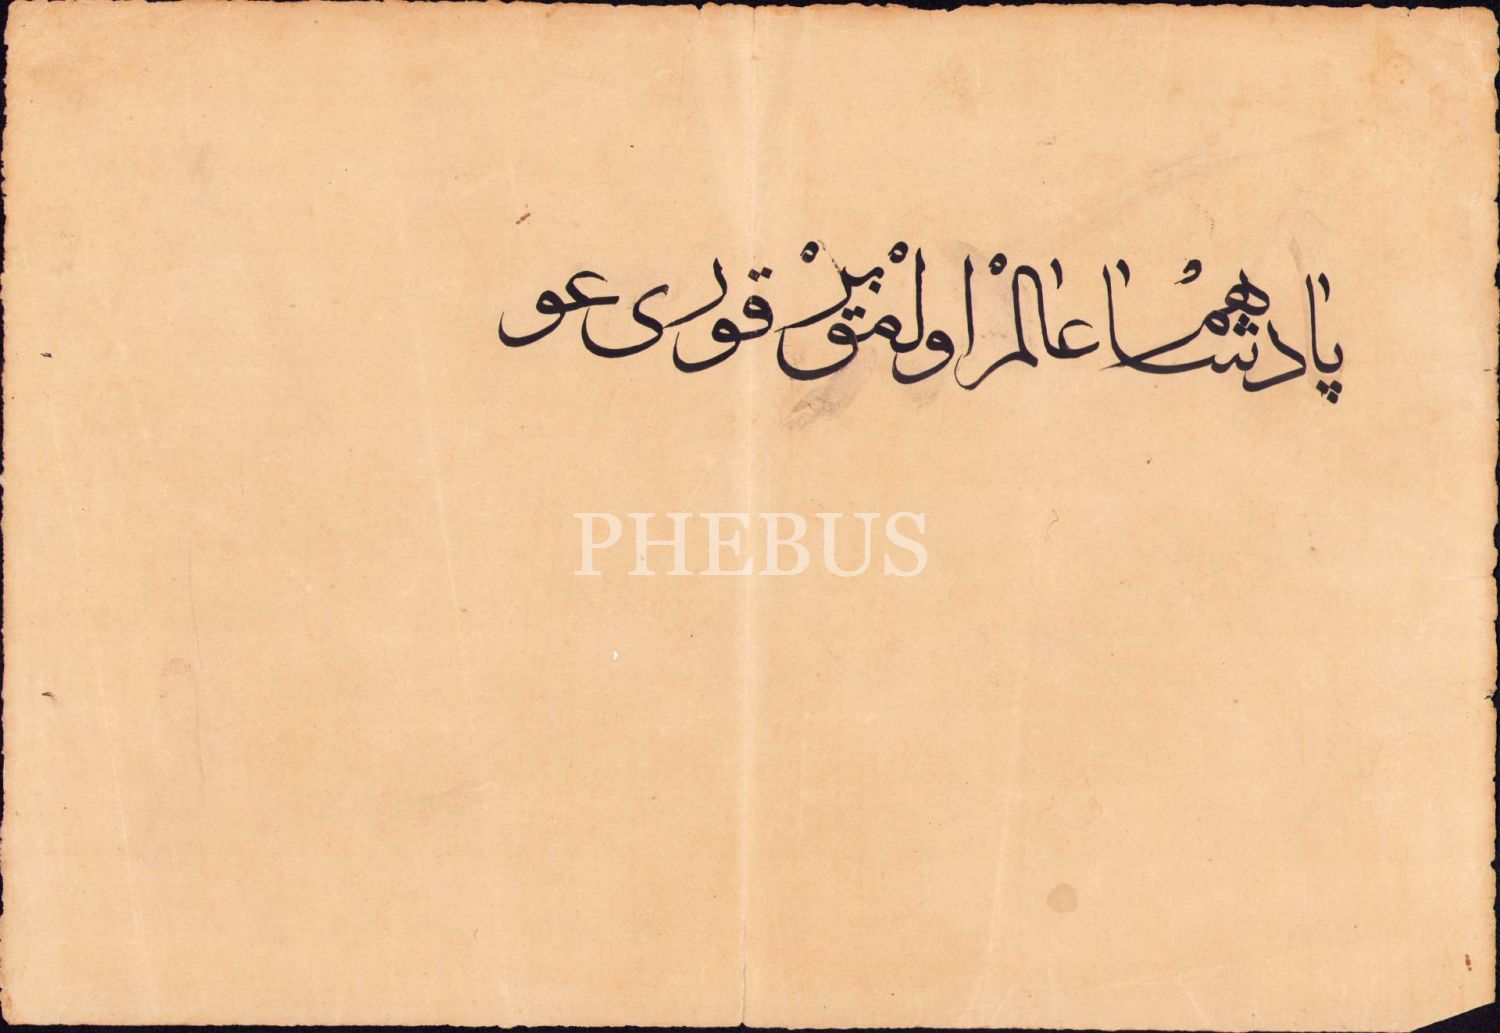 پادشاه عالم اولمق بر قوری عو
PHEBUS